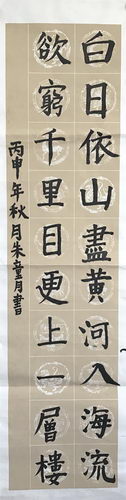 白日依山盡黃河入海流
欲窮千里目更上一層樓
丙申年秋月朱童月書